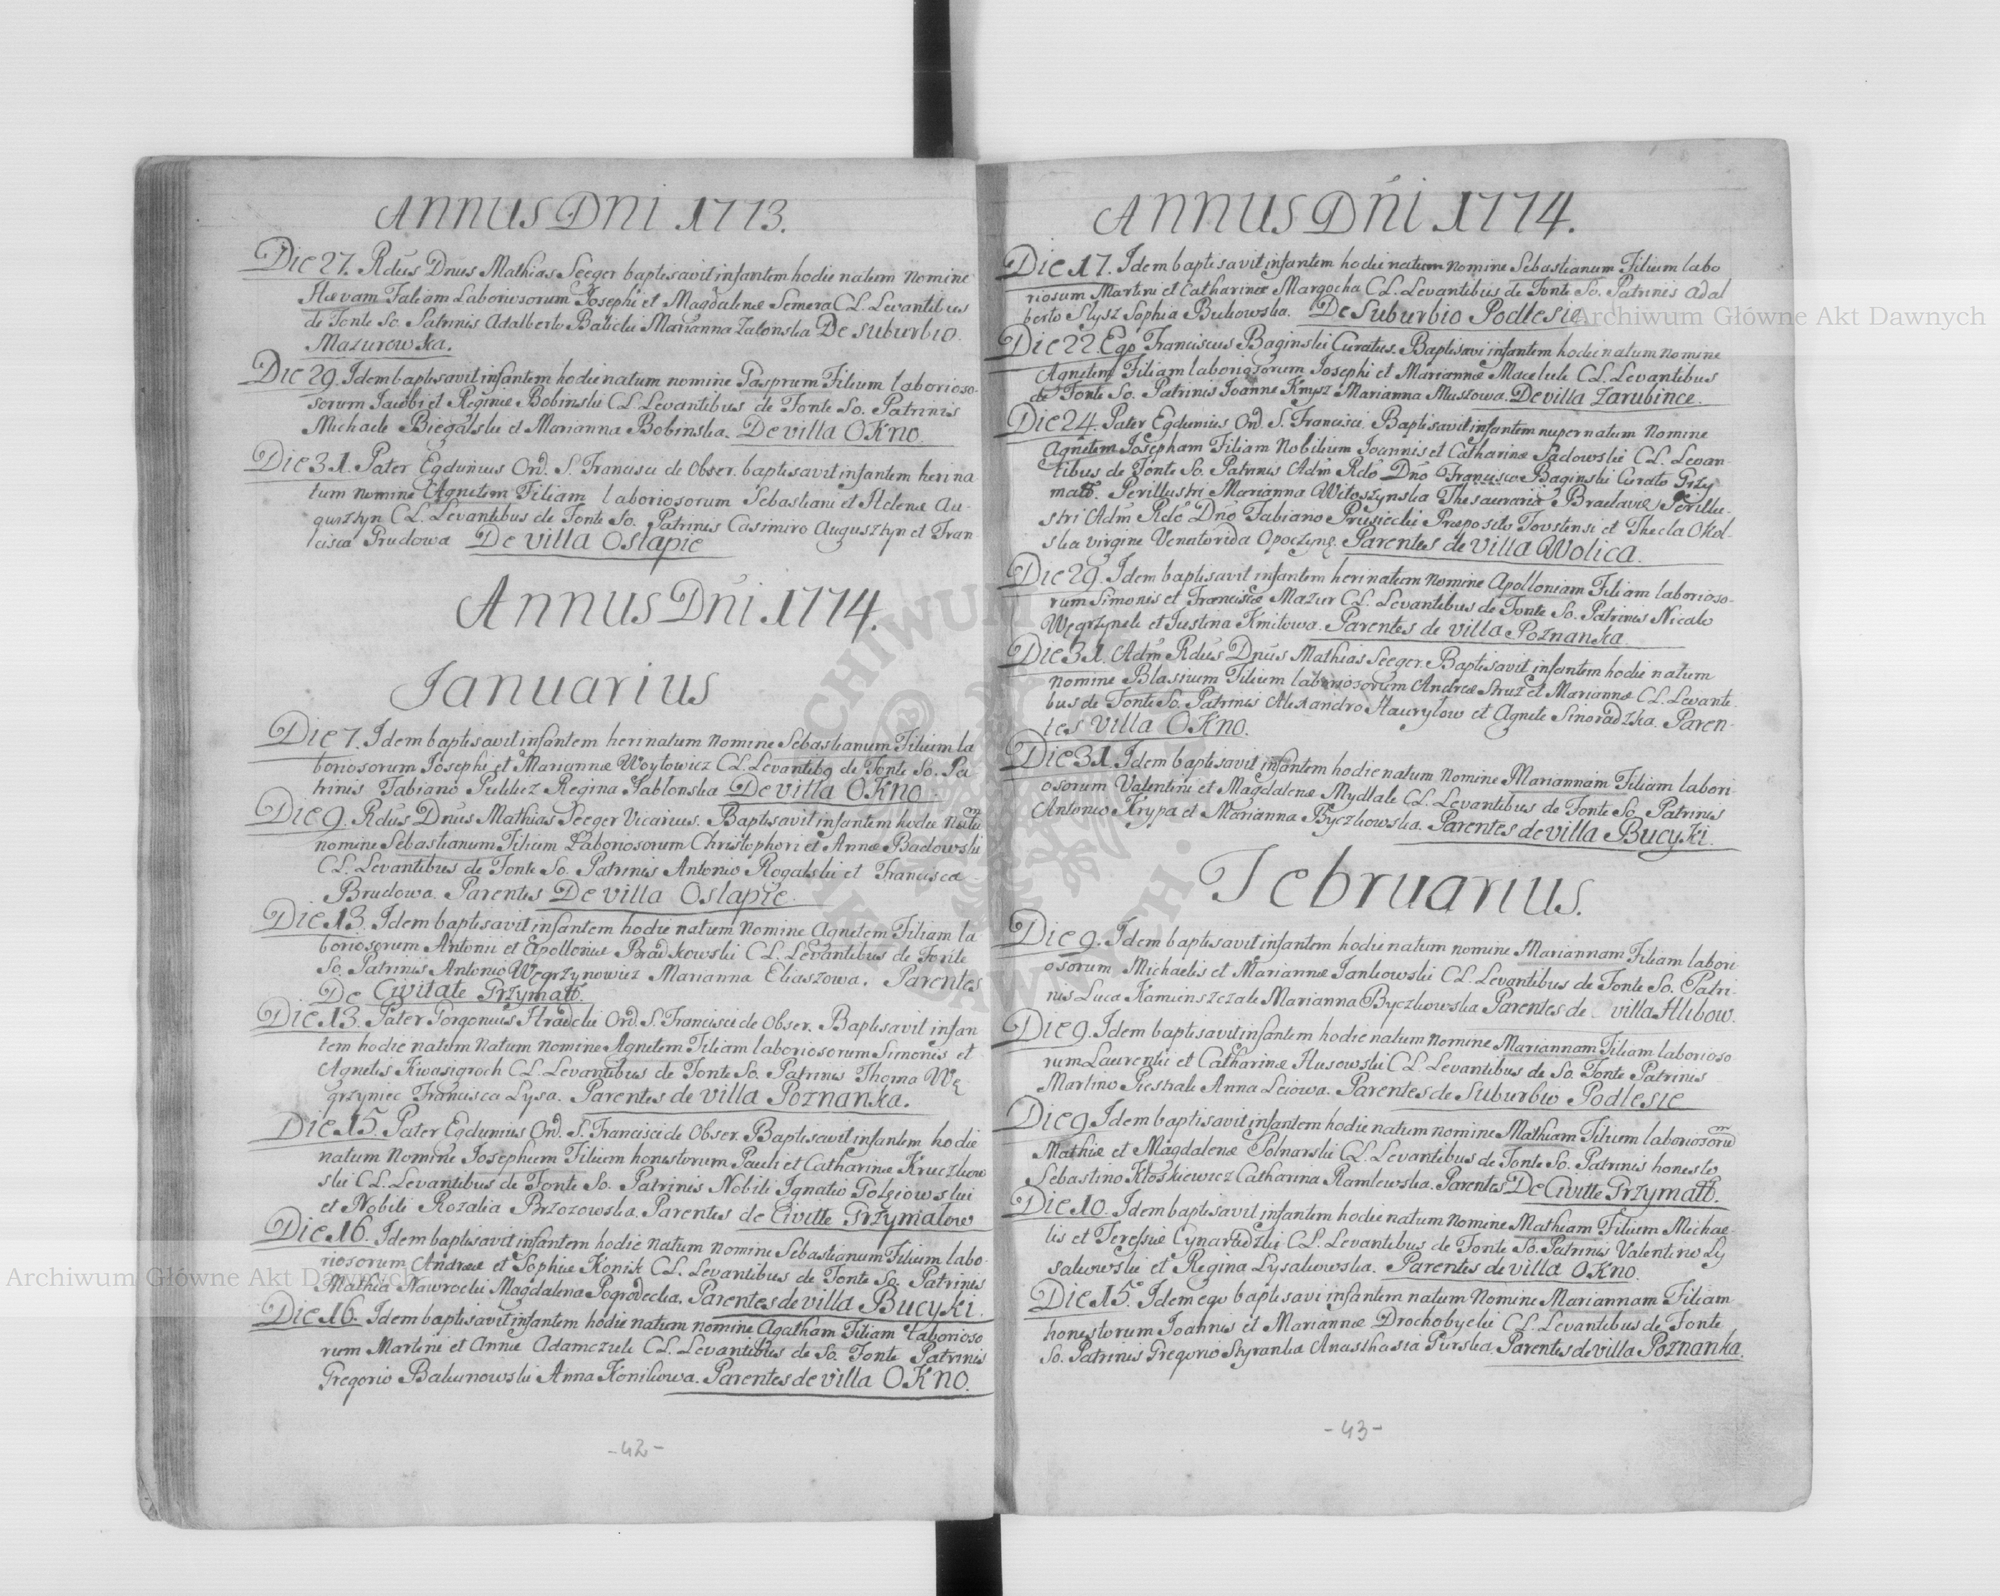 ANNUS DNI 1773.
Die 27. Rdus Dnus Mathias Seeger baptisavit infantem hodie natum nomine
Hevam Faliam Laboriosorum Josephi et Magdalenæ Semera CL. Levantibus
de Fonte So. Patrinis Adalberto Balicki Marianna Zalonska De suburbio
Mazurowka.
Die 29. Idem baptisavit infantem hodie natum nomine Gasprum Filium laborioso-
sorum Jacobi et Reginæ Bobinski CL. Levantibus de Fonte So. Patrinis
Michaele Biegalski et Marianna Bobinska. De villa OKno.
Die 31. Pater Egdunius Ord. S. Francisci de Obser. baptisavit infantem heri na
tum nomine Agnetem Filiam laboriosorum Sebastiani et Helenæ Au-
gusztyn CL. Levantibus de Fonte So. Patrinis Casimiro Augusztyn et Fran-
cisca Prudowa De villa Oslapie
Annus Dni 1774.
Januarius
Die 7. Idem baptisavit infantem heri natum nomine Sebastianum Filium la
boriosorum Josephi et Mariannæ Woytowicz CL. Levantibq de Fonte So. Pa
trinis Fabiano Pulikcz Regina Jablonska De villa OKno.
Die 9. Rdus Dnus Mathias Seeger Vicarius. Baptisavit infantem hodie natum
nomine Sebastianum Filium Laboriosorum Christophori et Annæ Badowski
CL. Levantibus de Fonte So. Patrinis Antonio Rogalski et Francisca
Brudowa. Parentes De villa Oslapie.
Die 13. Idem baptisavit infantem hodie natum nomine Agnetem Filiam la
boriosorum Antonii et Apolloniæ Bradkowski CL. Levantibus de Fonte
So. Patrinis Antonio Węgrzynowicz Marianna Eliaszowa. Parentes
De Civitate Grzymałł.
Die 13. Pater Gorgonius Hradcki Ord S. Francisci de Obser. Baptisavit infan
tem hodie natum Natum nomine Agnetem Filiam laboriosorum Simonis et
Agnetis Kwasigroch CL. Levantibus de Fonte So. Patrinis Thoma Wę
grzyniec Francisca Lysa. Parentes de villa Poznanka.
Die 15. Pater Egdunius Ord. S. Francisci de Obser. Baptisavit infantem hodie
natum Nomine Josephum Filium honestorum Pauli et Catharinæ Kruczkow
ski CL. Levantibus de Fonte So. Patrinis Nobili Ignatio Golgiowski
et Nobili Rozalia Brzozowska. Parentes de Civitte Grzymałow
Die 16. Idem baptisavit infantem hodie natum nomine Sebastianum Filium labo-
riosorum Andreæ et Sophiæ Konik CL. Levantibus de Fonte So. Patrinis
Mathia Nawrocki Magdalena Pogrodecka. Parentes de villa Bucyki.
Die 16. Idem baptisavit infantem hodie natum nomine Agatham Filiam Laborioso
rum Martini et Annæ Adamczuk CL. Levantibus de So. Fonte Patrinis
Gregorio Bakunowski Anna Konikowa. Parentes de villa OKno.
-42-
ANNUS Dñi 1774.
Die 17. Idem baptisavit infantem hodie natum nomine Sebastianum Filium labo
riosum Martini et Catharinæ Margocha CL. Levantibus de Fonte So. Patrinis Adal
berto Slysz Sophia Bukowska. De Suburbio Podlesie
Die 22. Ego Franciscus Baginski Curatus. Baptisavi infantem hodie natum nomine
Agnetem Filiam laboriosorum Josephi et Mariannæ Maceluk CL. Levantibus
de Fonte So. Patrinis Joanne Knysz Marianna Muszowa. De villa Zarubince.
Die 24. Pater Egdunius Ord. S. Francisci. Baptisavit infantem nuper natum Nomine
Agnetem Josepham Filiam Nobilium Joannis et Catharinæ Sadowski CL. Levan-
tibus de Fonte So. Patrinis Adm Rdo Dno Francisco Baginski Curato Grzy
małł. Perillustri Marianna Witoszynska Thesauraria Braclaviæ Perillu-
stri Adm Rdo Dno Fabiano Prusiecki Præposito Towstensi et Thecla Okol-
ska virgine Venatorida Opoczynę. Parentes de villa Wolica.
Die 29. Idem baptisavit infantem heri natum nomine Apolloniam Filiam laborioso-
rum Simonis et Franciscæ Mazur CL. Levantibus de Fonte So. Patrinis Nicalo
Węgrzynek et Justina Kmitowa. Parentes de villa Poznanka.
Die 31. Adm Rdus Dnus Mathias Seeger. Baptisavit infantem hodie natum
nomine Blasium Filium laboriosorum Andreæ Struz et Mariannæ CL. Levanti-
bus de Fonte So. Patrinis Alexandro Hawrylow et Agnete Sinoradzka. Paren-
tes villa OKno.
Die 31. Idem baptisavit infantem hodie natum nomine Mariannam Filiam labori-
osorum Valentini et Magdalenæ Mydlak CL. Levantibus de Fonte So. Patrinis
Antonio Krypa et Marianna Byczkowska. Parentes de villa Bucyki.
Februarius.
Die 9. Idem baptisavit infantem hodie natum nomine Mariannam Filiam labori-
osorum Michaelis et Mariannæ Jankowski CL. Levantibus de Fonte So. Patri-
nis Luca Kaminszczak Marianna Byczkowska Parentes de villa Hlibow.
Die 9. Idem baptisavit infantem hodie natum nomine Mariannam Filiam laborioso
rum Laurentii et Catharinæ Husowski CL. Levantibus de So. Fonte Patrinis
Martino Piestrak Anna Leiowa. Parentes de Suburbio Podlesie
Die 9. Idem baptisavit infantem hodie natum nomine Mathiam Filium laboriosorum
Mathiæ et Magdalenæ Polnarski CL. Levantibus de Fonte So. Patrinis honesto
Sebastino Kłoskiewicz Catharina Ramlewska. Parentes De Civitte Grzymałł.
Die 10. Idem baptisavit infantem hodie natum nomine Mathiam Filium Michae-
lis et Teressiæ Cynarudzki CL. Levantibus de Fonte So. Patrinis Valentino Ly
sakowski et Regina Lysakowska. Parentes de villa OKno.
Die 15. Idem ego baptisavi infantem natum Nomine Mariannam Filiam
honestorum Joannis et Mariannæ Drochobycki CL. Levantibus de Fonte
So. Patrinis Gregorio Styranka Anasthasia Gurska. Parentes de villa Poznanka.
-43-
Archiwum Główne Akt Dawnych
Archiwum Główne Akt Dawnych